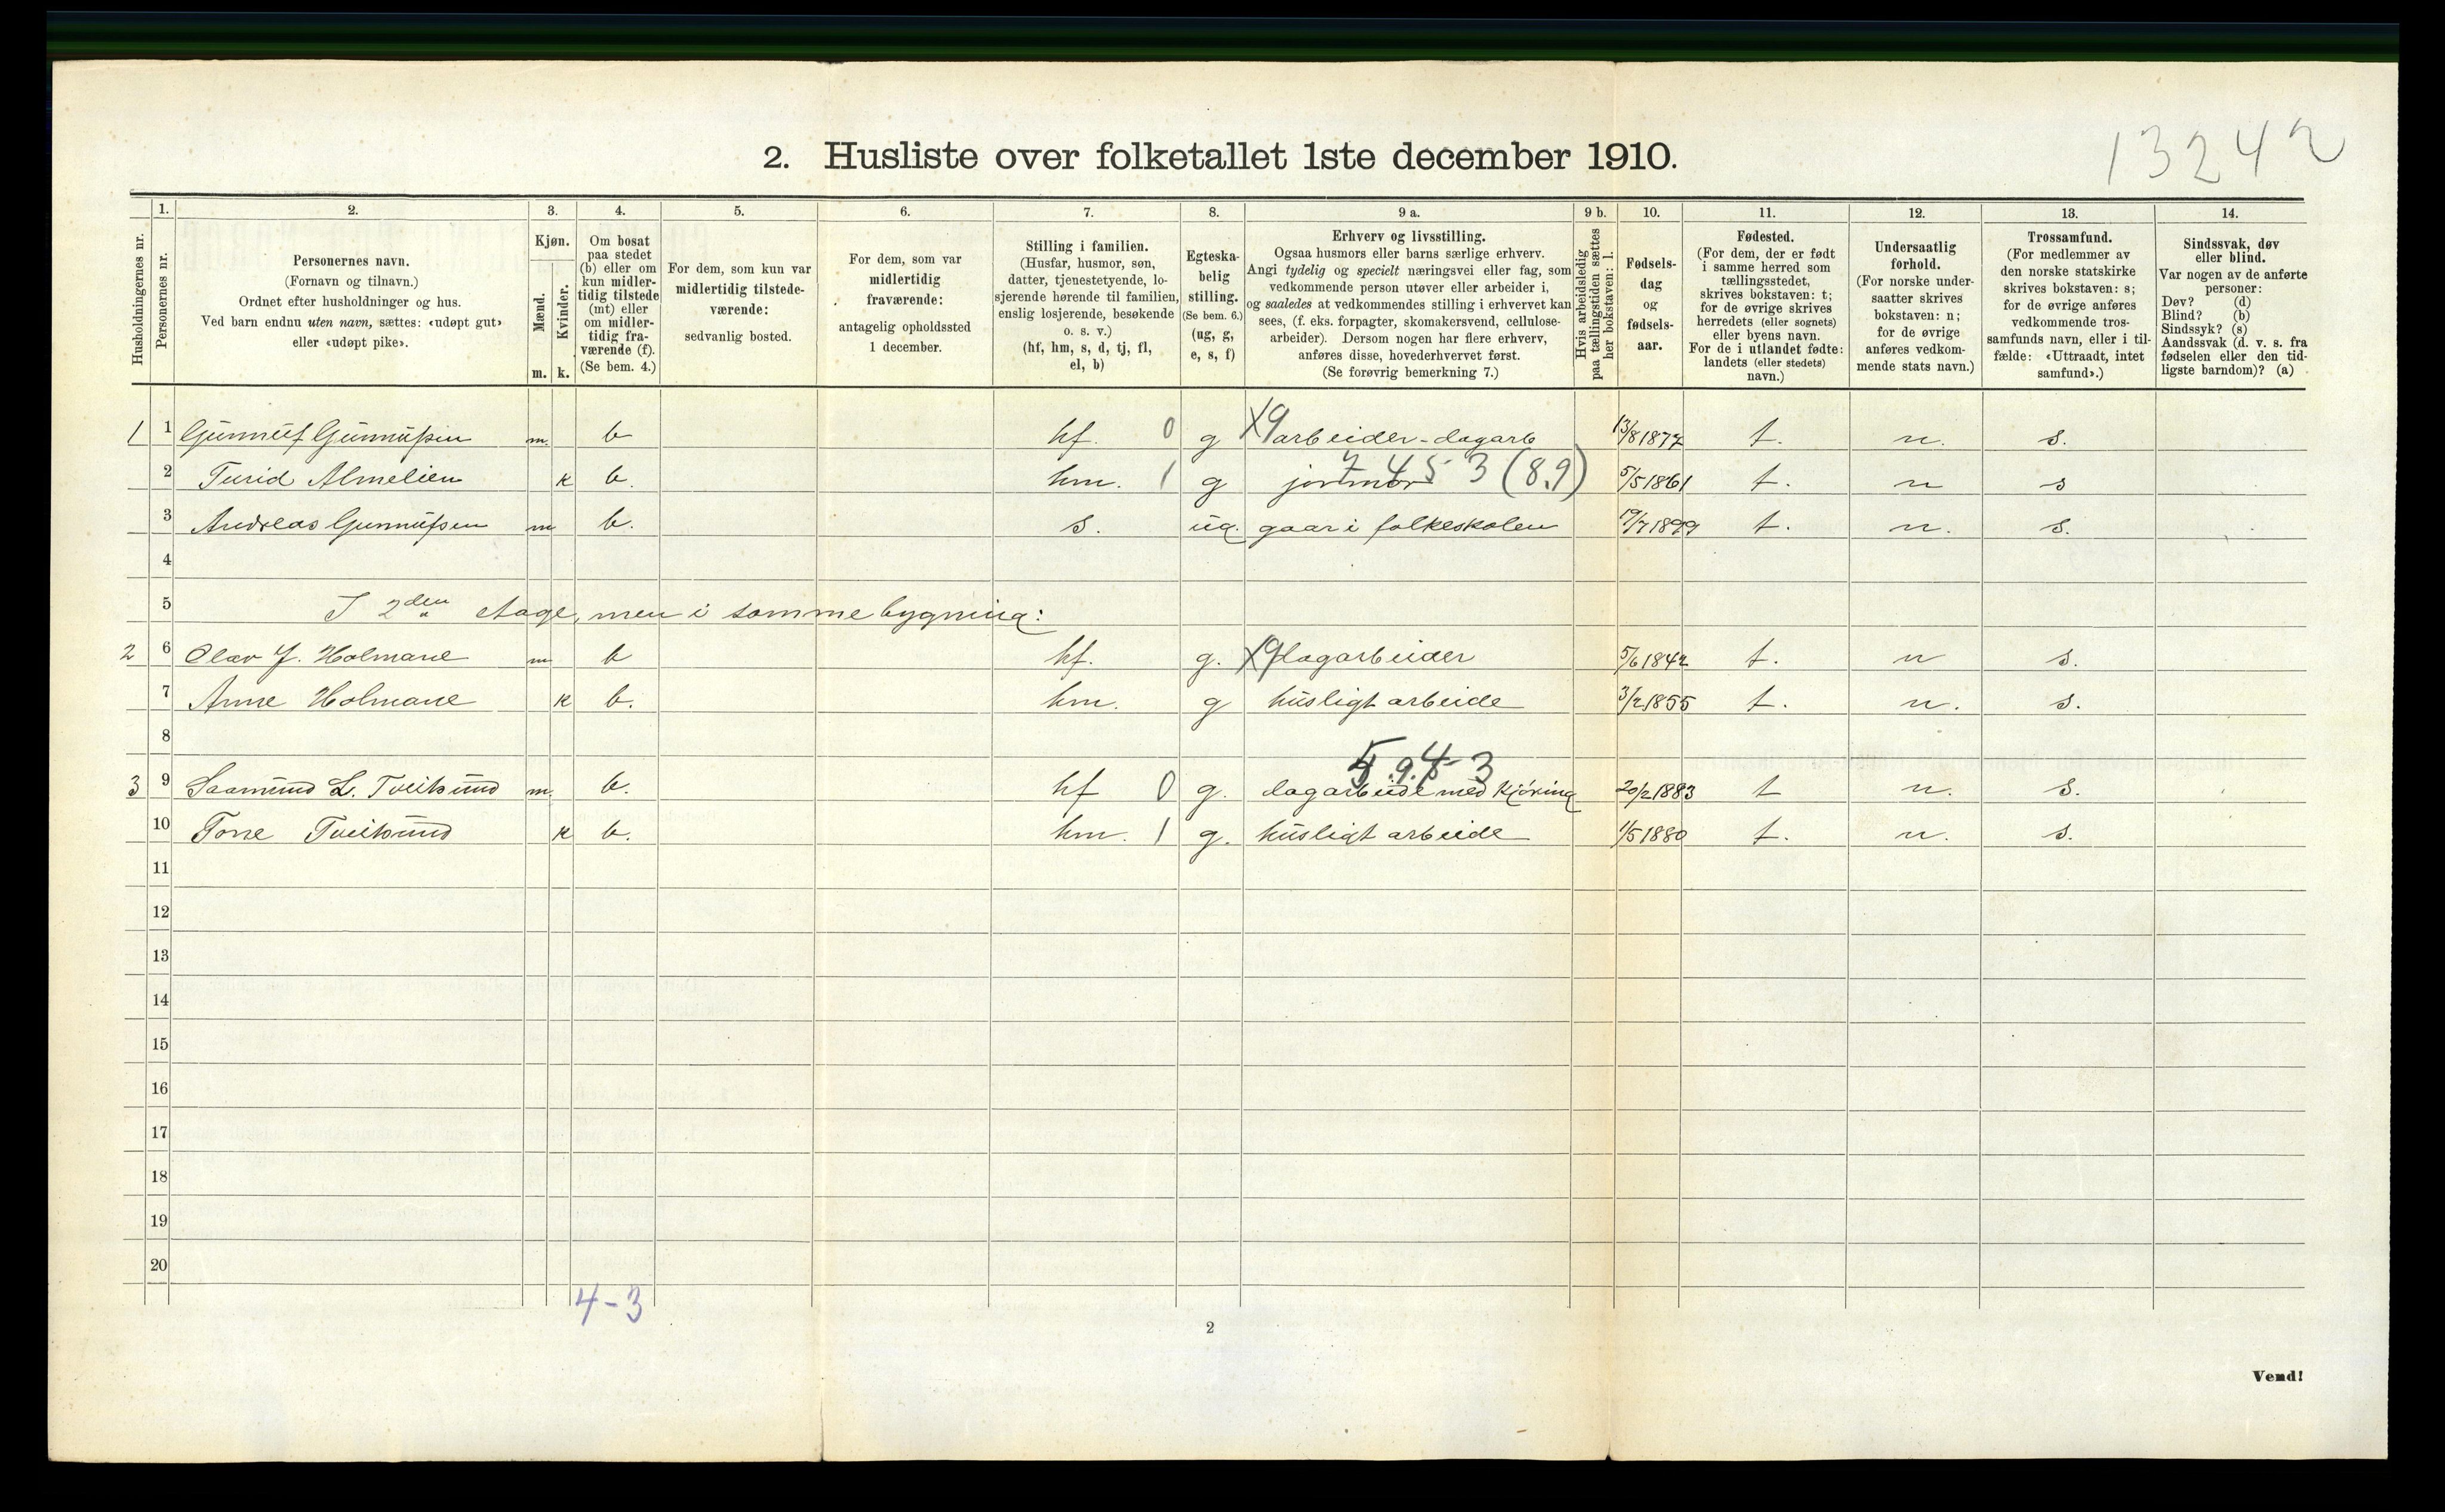 13242
2. Husliste over folketallet 1ste december 1910.
Husholdningernes nr.
1. Personernes nr.
2. Personernes navn.
(Fornavn og tilnavn.)
Ordnet efter husholdninger og hus.
Ved barn endnu uten navn, sættes: «udøpt gut»
eller «udøpt pike».
3. Kjøn.
Mænd. Kvinder.
m. k.
4. Om bosat
paa stedet
(b) eller om
kun midler-
tidig tilstede
(mt) eller
om midler-
tidig fra-
værende (f).
(Se bem. 4.)
5. For dem, som kun var
midlertidig tilstede-
værende:
sedvanlig bosted.
6. For dem, som var
midlertidig
fraværende:
antagelig opholdssted
1 december.
7. Stilling i familien.
(Husfar, husmor, søn,
datter, tjenestetyende, lo-
sjerende hørende til familien,
enslig losjerende, besøkende
o. s. v.)
(hf, hm, s, d, tj, fl,
el, b)
8. Egteska-
belig
stilling.
(Se bem. 6.)
(ug, g,
e, s, f)
9 a. Erhverv og livsstilling.
Ogsaa husmors eller barns særlige erhverv.
Angi tydelig og specielt næringsvei eller fag, som
vedkommende person utøver eller arbeider i,
og saaledes at vedkommendes stilling i erhvervet kan
sees, (f. eks. forpagter, skomakersvend, cellulose-
arbeider). Dersom nogen har flere erhverv,
anføres disse, hovederhvervet først.
(Se forøvrig bemerkning 7.)
9 b. Hvis arbeidsledig
paa tællingstiden sættes
her bokstaven: l.
10. Fødsels-
dag
og
fødsels-
aar.
11. Fødested.
(For dem, der er født
i samme herred som
tællingsstedet,
skrives bokstaven: t;
for de øvrige skrives
herredets (eller sognets)
eller byens navn.
For de i utlandet fødte:
landets (eller stedets)
navn.)
12. Undersaatlig
forhold.
(For norske under-
saatter skrives
bokstaven: n;
for de øvrige
anføres vedkom-
mende stats navn.)
13. Trossamfund.
(For medlemmer av
den norske statskirke
skrives bokstaven: s;
for de øvrige anføres
vedkommende tros-
samfunds navn, eller i til-
fælde: «Uttraadt, intet
samfund».)
14. Sindssvak, døv
eller blind.
Var nogen av de anførte
personer:
Døv? (d)
Blind? (b)
Sindssyk? (s)
Aandssvak (d. v. s. fra
fødselen eller den tid-
ligste barndom)? (a)
1 1 Gunnuf Gunnufsen m. b hf. 0 g X9 arbeider-dagarb 13/8 1877 t. n. s.
7 45 3 (8.9)
2 Turid Almelien k b. hm. 1 g jormor 5/5 1861 t. n s
3 Andreas Gunnufsen m b. s. ug. gaar i folkeskolen 19/7 1899 t. n. s.
4
5 I 2den etage, men i samme bygning:
2 6 Olav J. Holmane m b hf. g. X9 dagarbeider 5/6 1842 t. n s.
7 Anne Holmane k b. hm. g husligt arbeide 3/2 1855 t. n. s.
8
3 9 Saamund L. Tveitsund m. b. hf 0 g. dagarbeide med kjøring 20/2 1883 t n. s.
10 Tone Tveitsund k b. hm. 1 g. husligt arbeide 1/5 1880 t. n. s.
11
12
13
14
15
16
17
18
19
20
4-3
2
Vend!